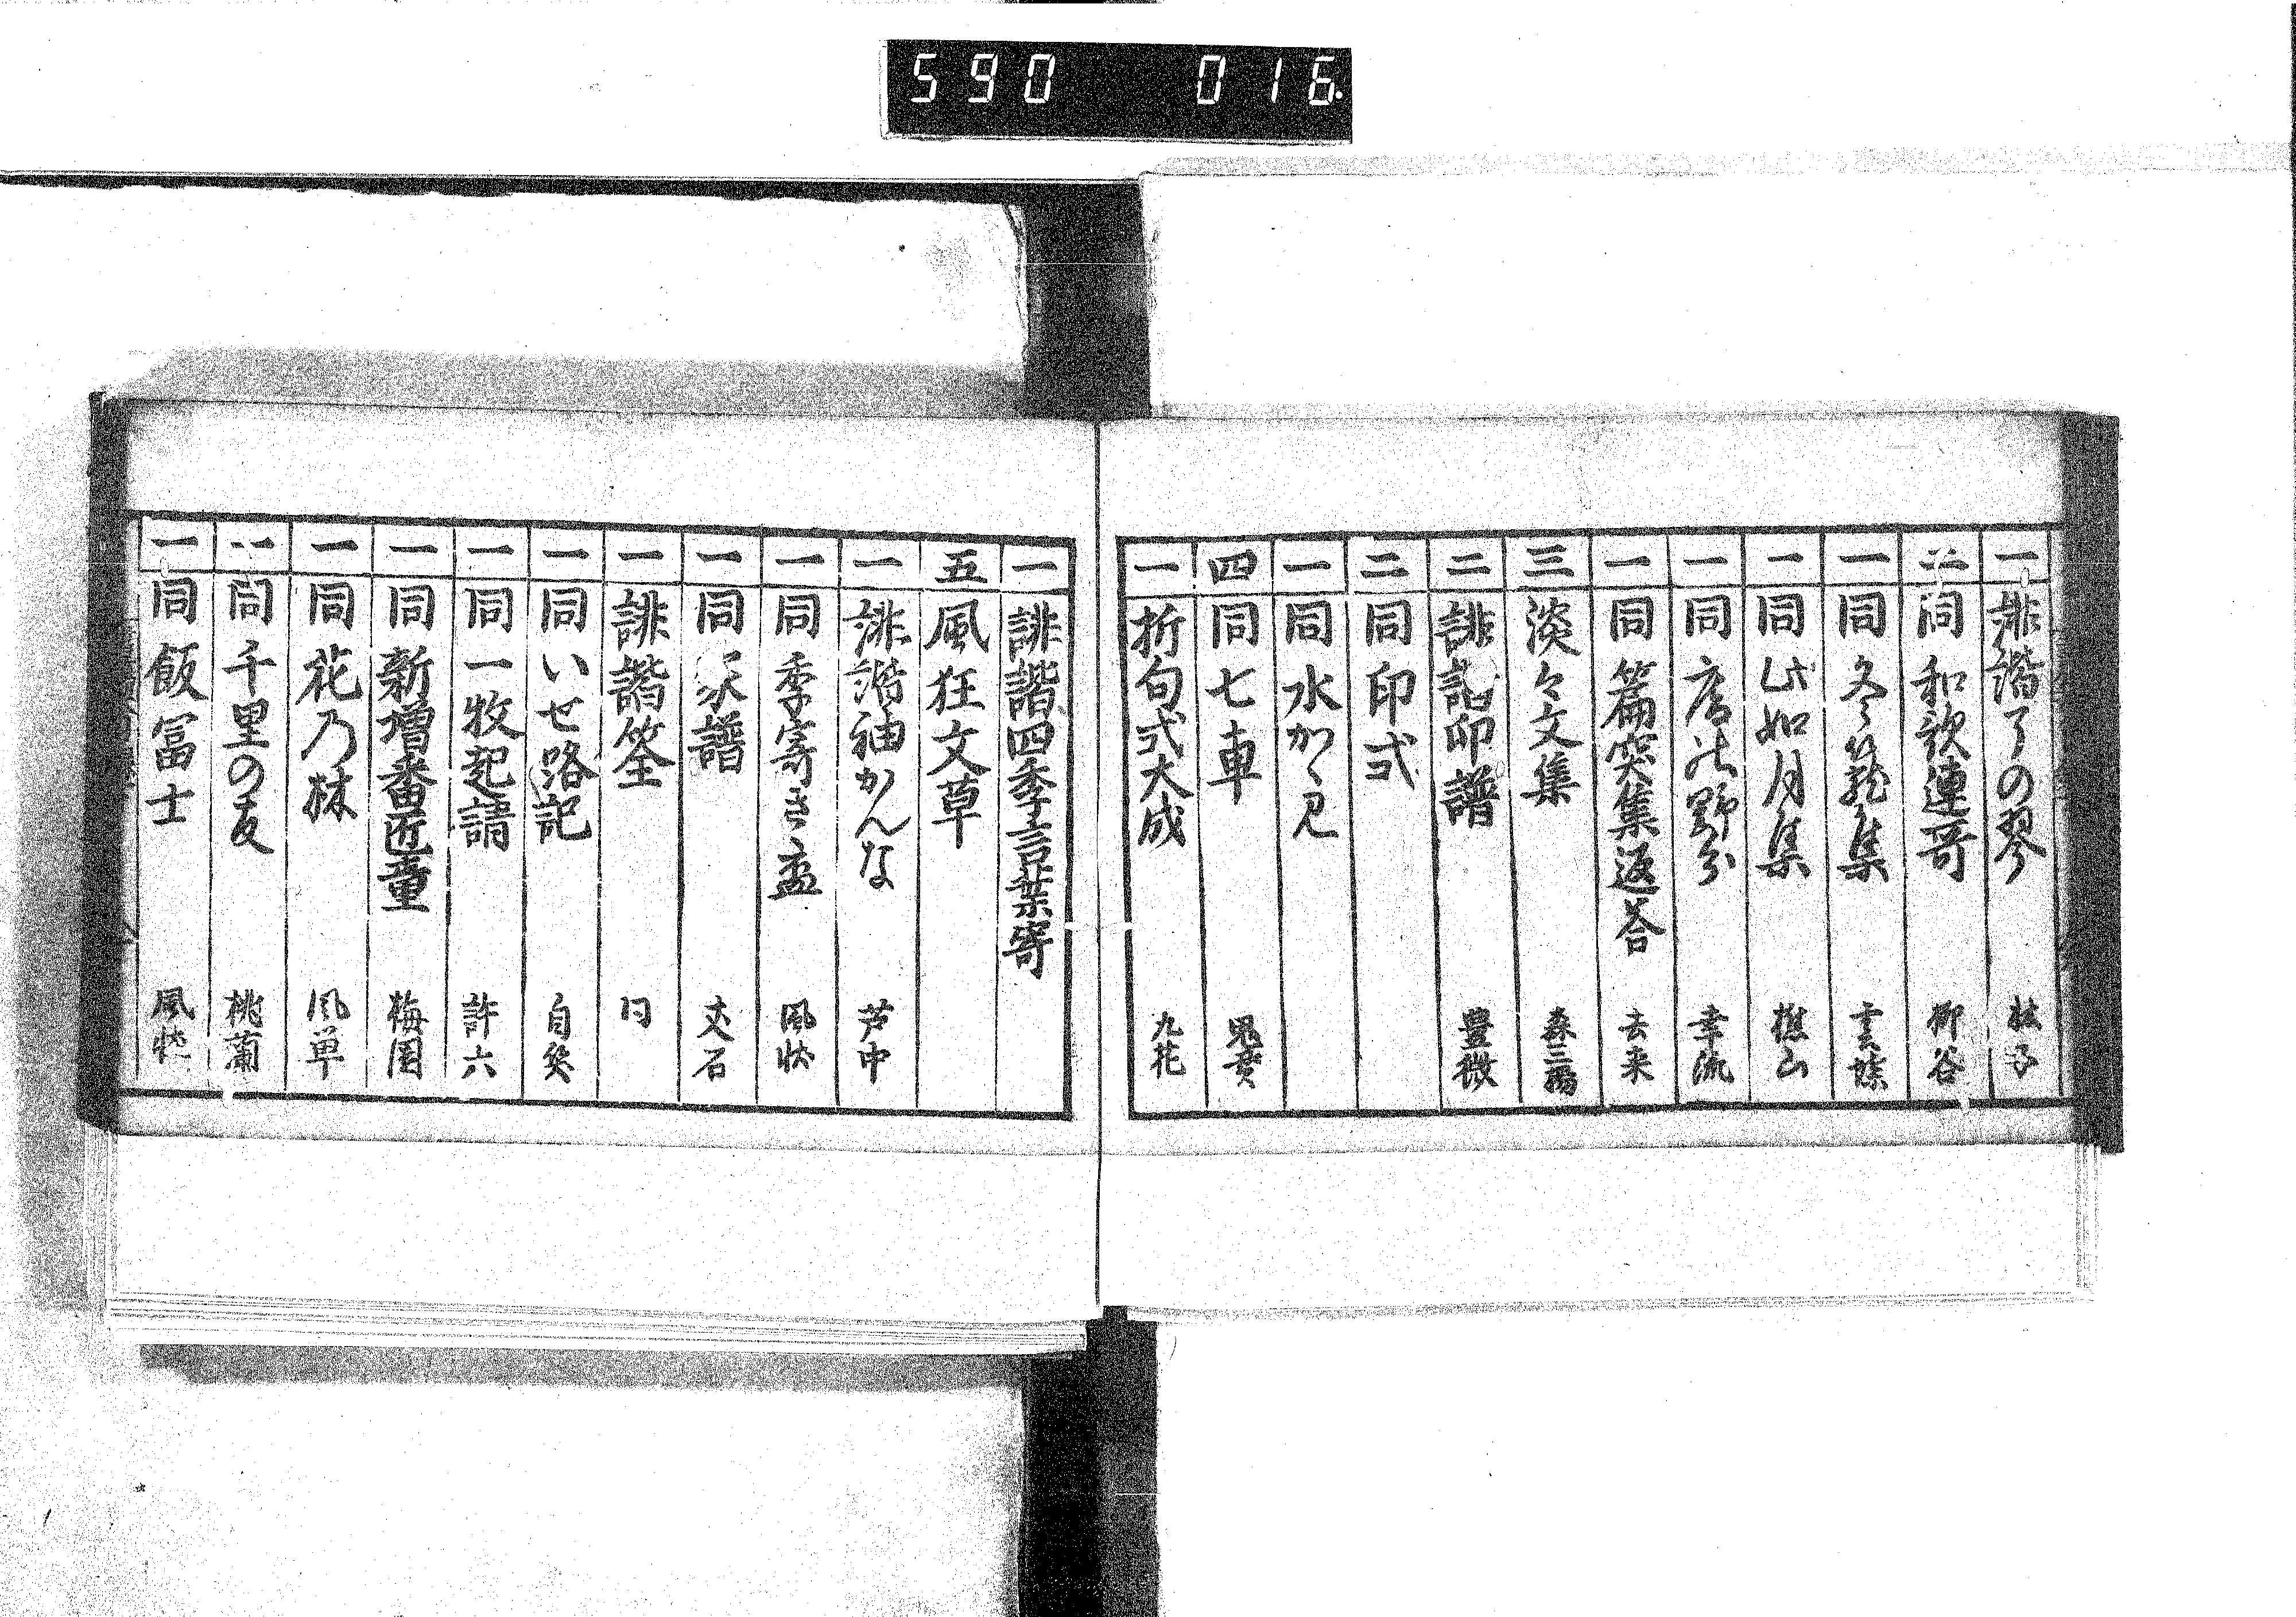 590 016
一 誹諧 の琴
二 同 和歌連哥 柳谷
一 同 冬籠集
一 同 此如月集 樵山
一 同 野分 幸流
一 同 篇突集返荅 去来
三 淡々文集
二 誹諧印譜 豊微
二 同 印式
一 同 水かゝみ
四 同 七車 鬼貫
一 折句式大成 九花
一 誹諧四季言葉寄
五 風狂文草
一 誹諧袖かんな 芦中
一 同 季寄さ 盃 風状
一 同 家譜 丈石
一 誹諧筌 同
一 同 いせ路記 自笑
一 同 一牧起請 許六
一 同 新増番匠童 梅園
一 同 花乃林 風草
一 同 千里の友 桃蘭
一 同 飯冨士 風状